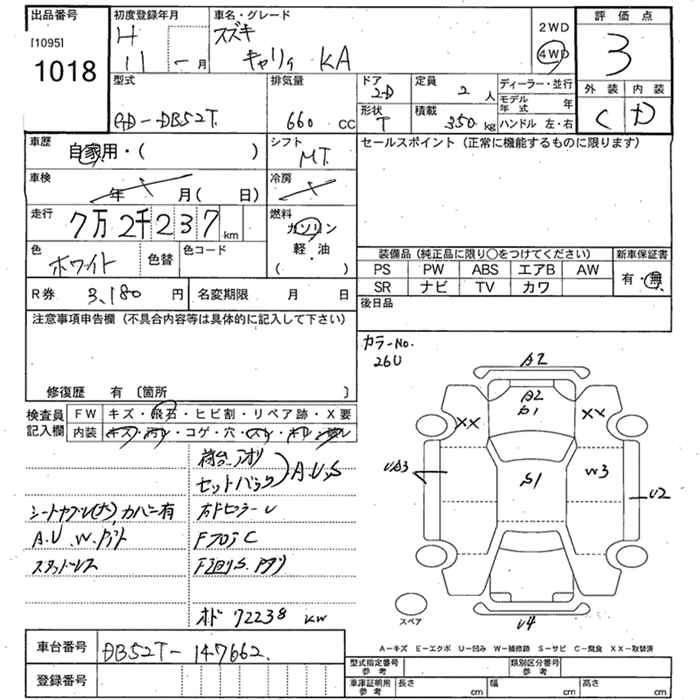 出品番号
[1095]
1018
初度登録年月
H
11 - 月
車名・グレード
スズキ
キャリィ KA
2WD
4WD
評価点
3
外装 内装
C D
型式
GD-DB52T
排気量
660 CC
ドア
2-D
形状
T
定員
2 人
積載
350 kg
ディーラー・並行
モデル年式 年
ハンドル 左・右
車歴
自家用・( )
シフト
MT
車検
年 月( 日)
冷房
走行
7万2千237 km
燃料
ガソリン
軽・油
( )
色
ホワイト
色替
色コード
R券 3,180 円
名変期限 月 日
セールスポイント(正常に機能するものに限ります)
装備品(純正品に限り○をつけてください)
新車保証書
PS PW ABS エアB AW
SR ナビ TV カワ
有・無
後日品
注意事項申告欄(不具合内容等は具体的に記入して下さい)
修復歴 有 〔箇所 〕
カラーNo.
26U
検査員記入欄
FW キズ・飛石・ヒビ割・リペア跡・X要
内装 キズ・汚レ・コゲ・穴・スレ・
荷台
A.U.S
セットバック
シート カバー有
A.U.W.
スタッドレス
72238 km
A2
A2
b1
XX XX
S1
W3
U2
U4
スペア
A-キズ E-エクボ U-凹み W-補修跡 S-サビ C-腐食 XX-取替済
車台番号 DB52T-147662
登録番号
型式指定番号 参考
類別区分番号 参考
車庫証明用 参考
長さ cm
幅 cm
高さ cm